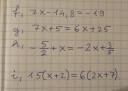 f, 7x-14,8=-19
g, 7x+5=6x+25
h, -5/2+x=-2x+3/2
i, 15(x+2)=6(2x+7)